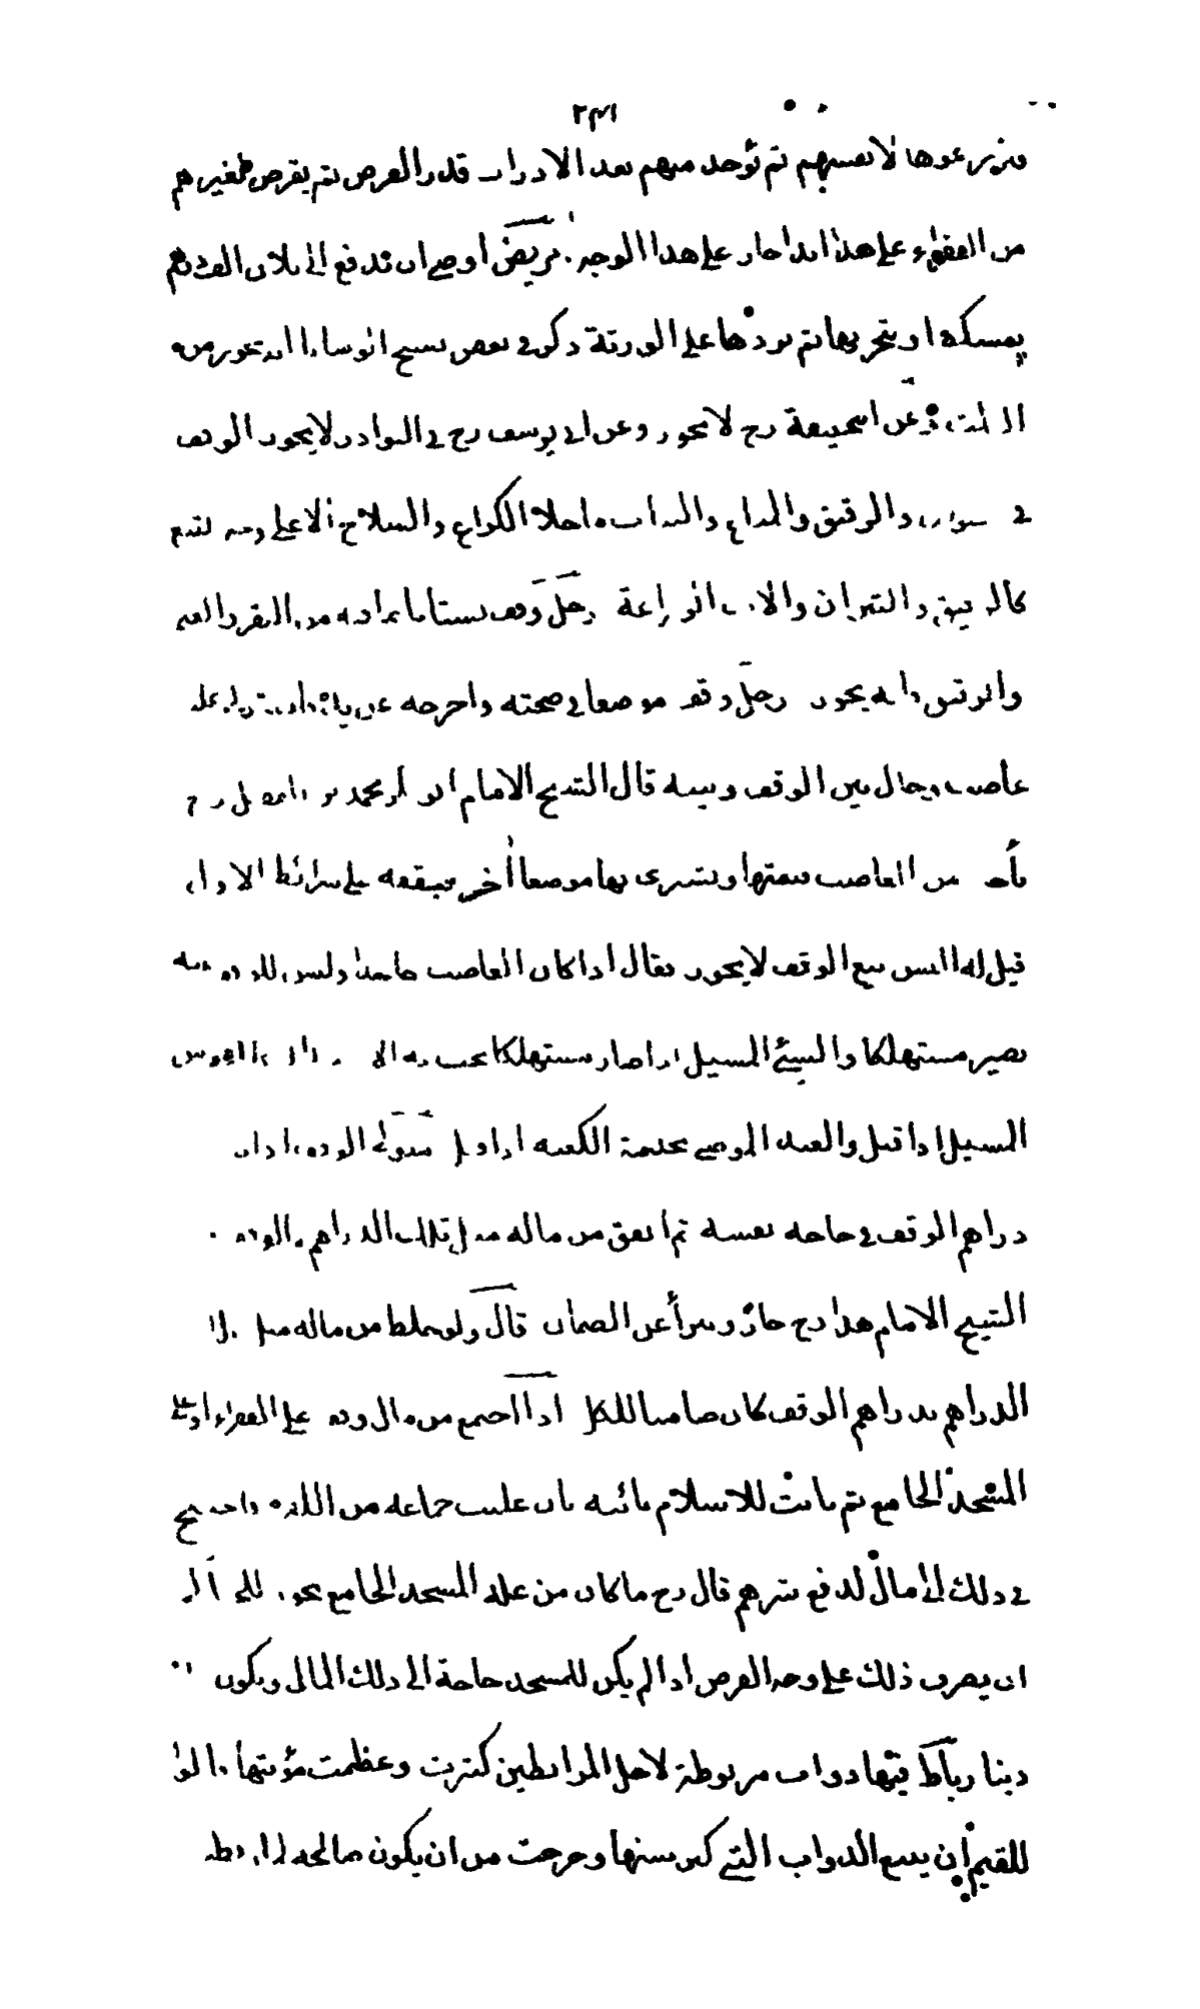 ٢٣١
فيزرعوها لانفسهم ثم توخذ منهم بعد الادراك قدر القرض ثم يقرض لغيرهم
من الفقراء على هذا ابدا جاز على هذا الوجه مريض اوصى ان تدفع الى فلان الف درهم
يمسكه او يتجر بها ثم يردها على الورثة ذكر في بعض نسخ الوصايا انه تجوز من
الثلث وعن ابي حنيفة رح لا يجوز وعن ابي يوسف رح في النوادر لا يجوز الوقف
في الحيوان والرقيق والمتاع والثياب ما خلا الكراع والسلاح الا على وجه التبع
كالرقيق والثيران والات الزراعة رجل وقف بستانا بما فيه من البقر والغنم
والرقيق فانه يجوز رجل وقف موضعا في صحته واخرجه عن يده فاستولى عليه
غاصب وحال بين الوقف وبينه قال الشيخ الامام ابو بكر محمد بن الفضل رح
يأخذ من الغاصب قيمتها ويشترى بها موضعا اخر فيقفه على شرائط الاول
قيل له اليس بيع الوقف لا يجوز فقال اذا كان الغاصب جاحدا وليس للوقف بينة
يصير مستهلكا والشيء المسبل اذا صار مستهلكا يجب به الاستبدال كالفرس
المسبل اذا قتل والعبد الموصى بخدمة الكعبة اذا قتل متولى الوقف اذا
دراهم الوقف في حاجة نفسه ثم انفق من ماله مثل تلك الدراهم في الوقف
الشيخ الامام هذا رح جاز ويبرأ عن الضمان قال ولو خلط من ماله مثل تلك
الدراهم بدراهم الوقف كان ضامنا للكل اذا اجتمع من مال وقف على الفقراء او على
المسجد الجامع ثم نابت للاسلام نائبة بان غلبت جماعة من الكفرة واحتيج
في ذلك الى مال لدفع شرهم قال رح ما كان من غلة المسجد الجامع يجوز للحاكم
ان يصرف ذلك على وجه القرض اذا لم يكن للمسجد حاجة الى ذلك المال ويكون
دينا رباط فيها دواب مربوطة لاجل المرابطين كثرت وعظمت مؤنتها قالوا
للقيم ان يبيع الدواب التي كبر سنها وخرجت من ان يكون صالحة لما ربطت